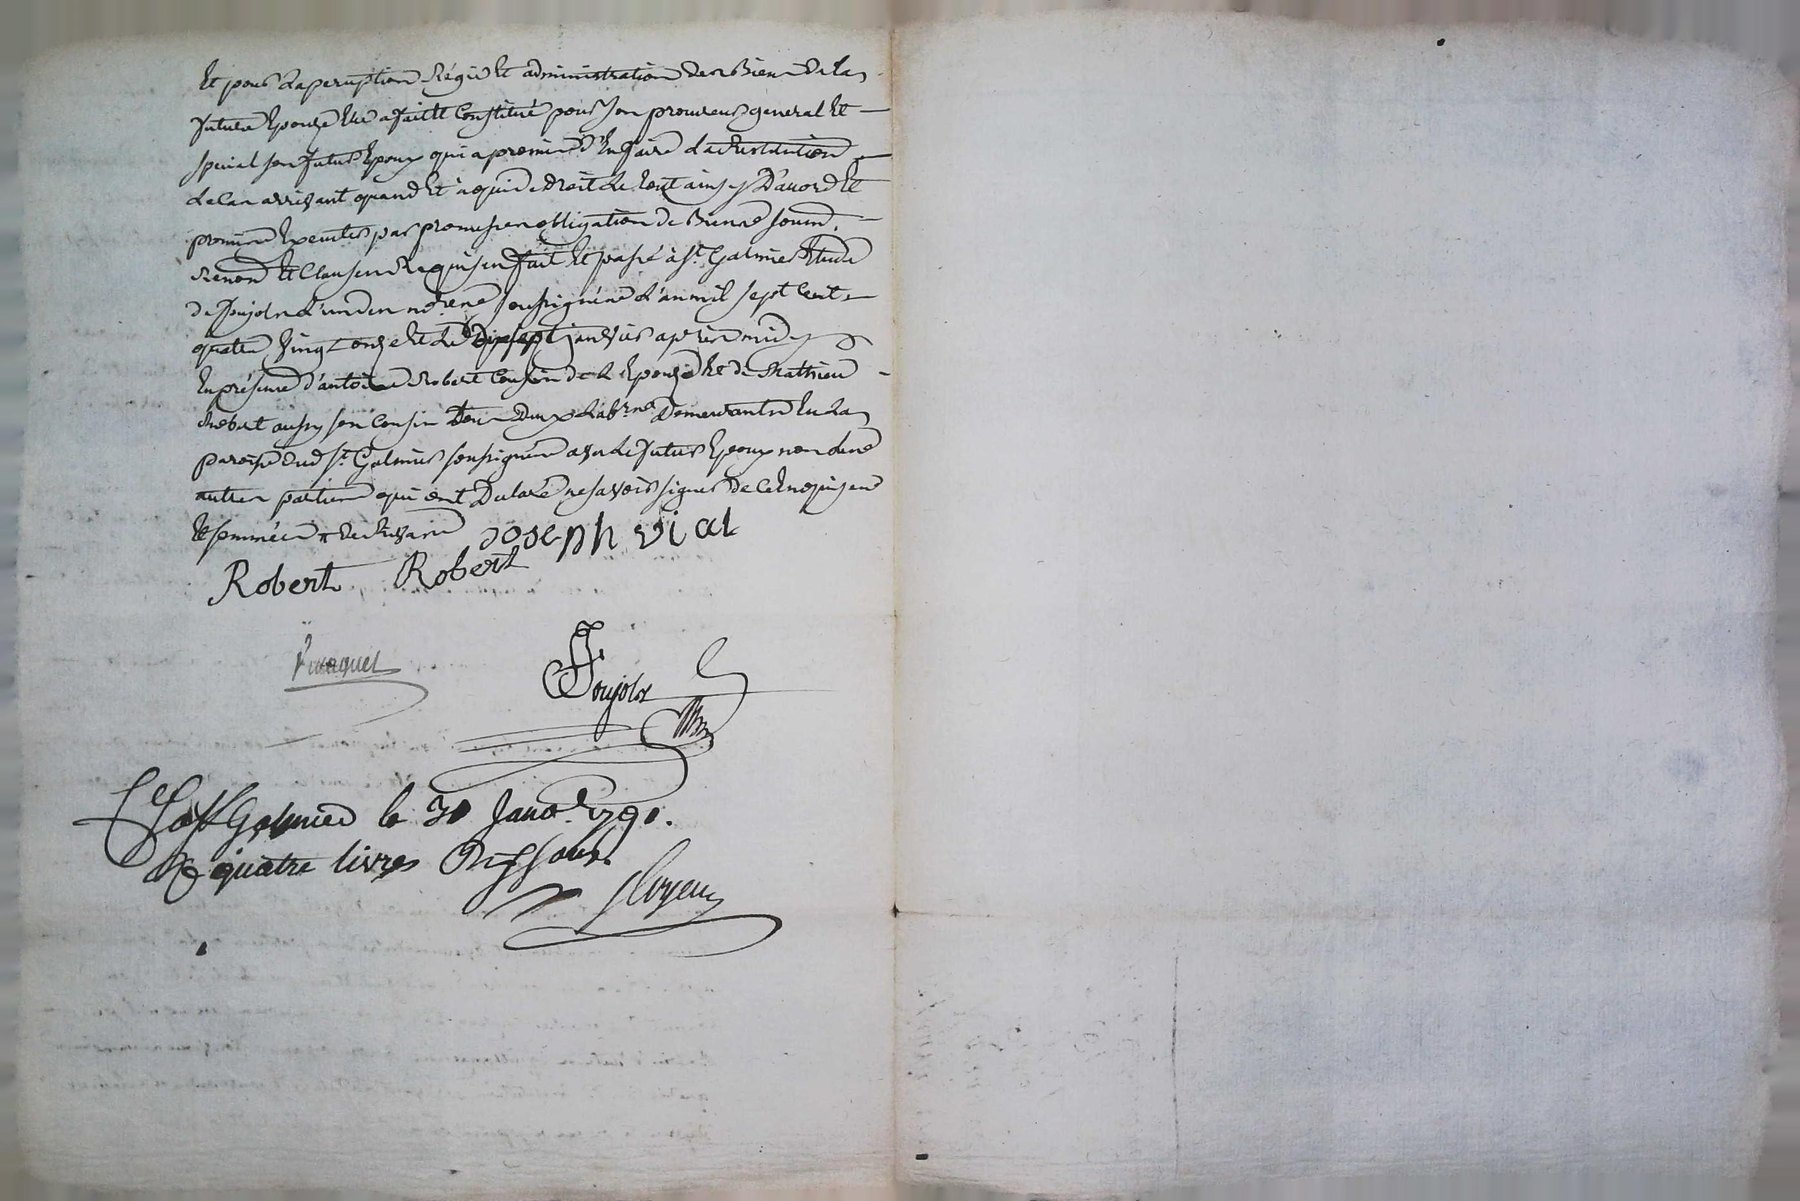 Et pour la perception Régie Et administration des Biens de la
future Epouze Elle a fait Et Constitué pour son procureur general Et
special son futur Epoux qui a promis d'En faire la restitution
le Cas arrivant quand Et à qui de droit le tout ainsy D'acord Et
promis Executer par promesses obligation de Biens soum.
Renon. Et Clauses Requises fait Et passé à St. Galmier Etude
de Joujole l'un des nores. soussignés L'an mil sept Cent
quatre Vingt onze Et Le Dix sept janvier après midy
En présence d'antoine Robert Cousin de la Epouze Et de Mathieu
Robert aussy son Cousin tous Deux Labrs. Demeurants En La
paroisse dud. St. Galmier soussignés avec le futur Epoux non les
autres parties qui ont Declaré ne savoir signer de Ce Enquises
Et sommées
joseph vial
Robert Robert
Joujole
Cé à St Galmier le 30 Janv. 1791.
R quatre livres Dix sous.